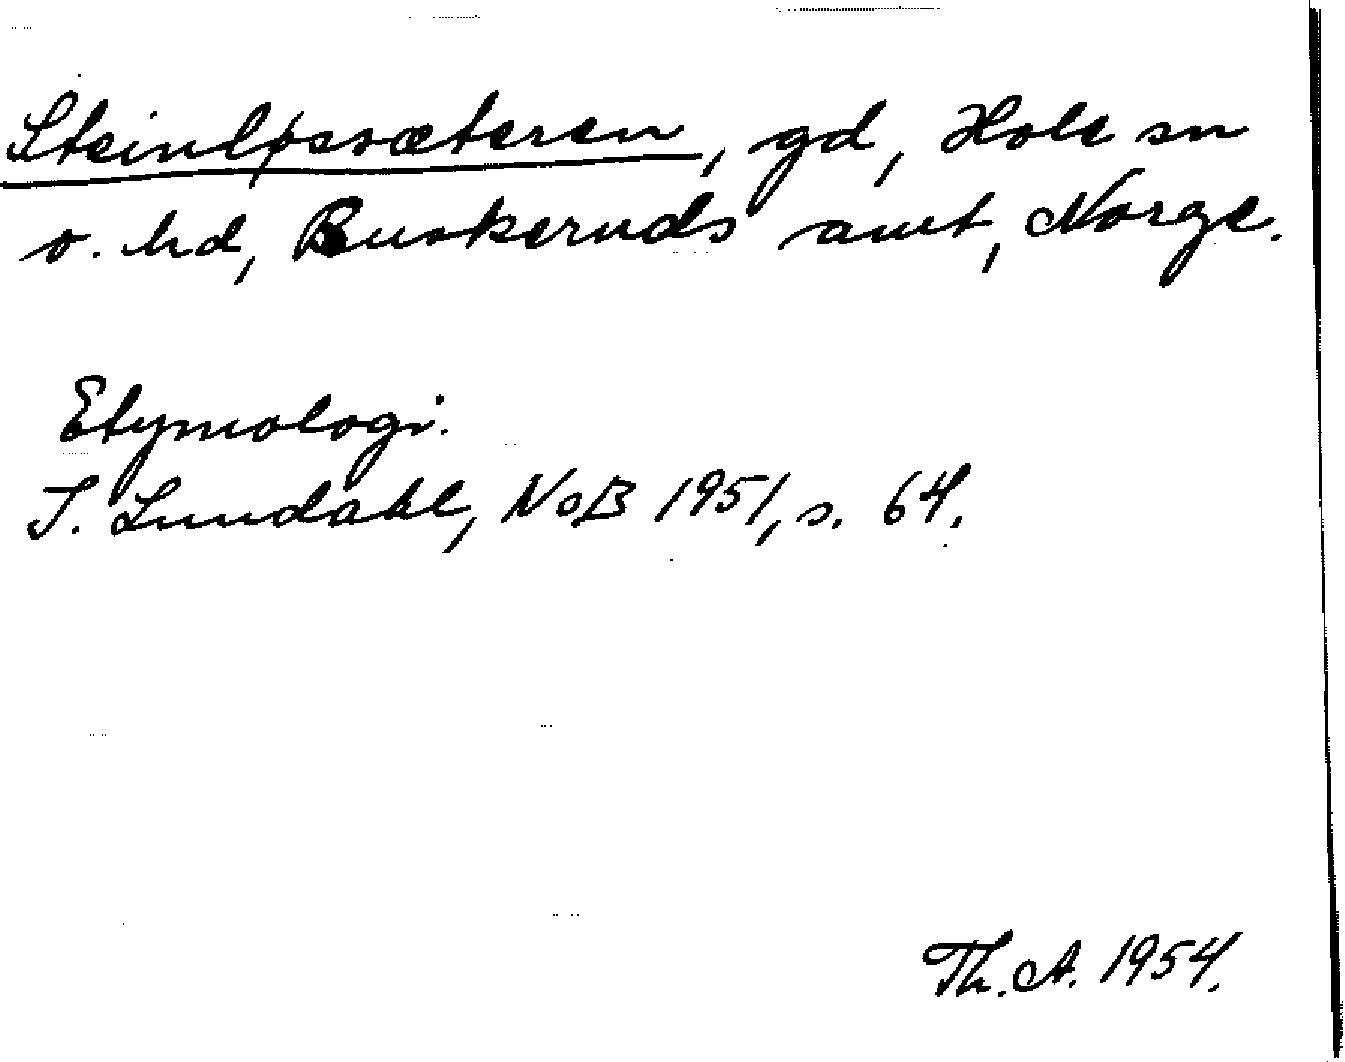 Steinløssæteren, gd, Hole sn
o. hd, Buskeruds amt, Norge.
Etymologi.
I. Lundahl, NoB 1951, s. 64.
Th. A. 1954.